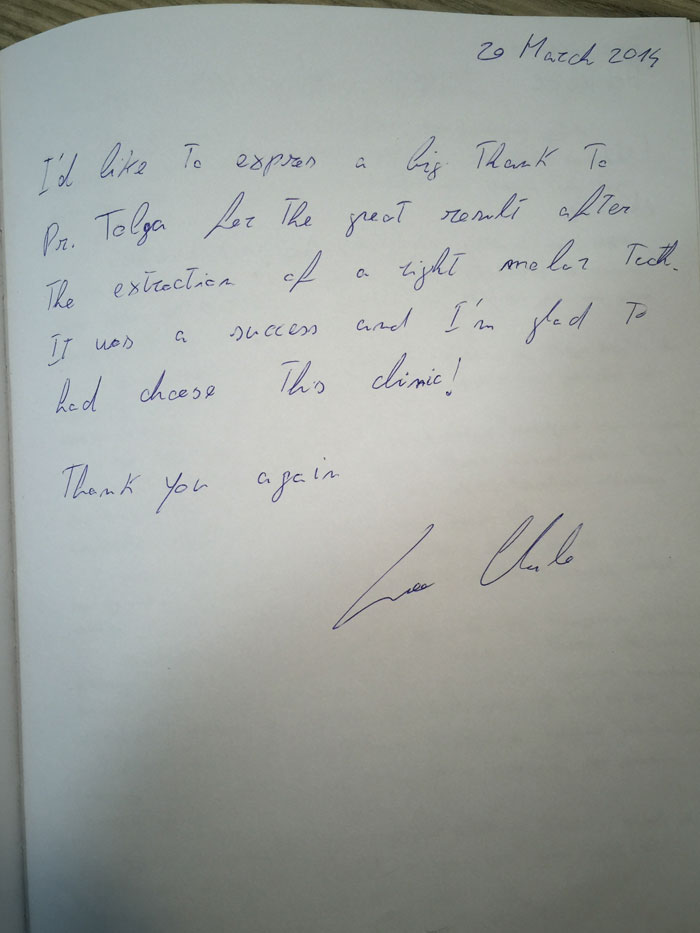 20 March 2014
I'd like to expres a big Thank To
Dr. Tolga for the great result after
The extraction of a right molar Tooth.
It was a success and I'm glad To
had choose This clinic!
Thank you again